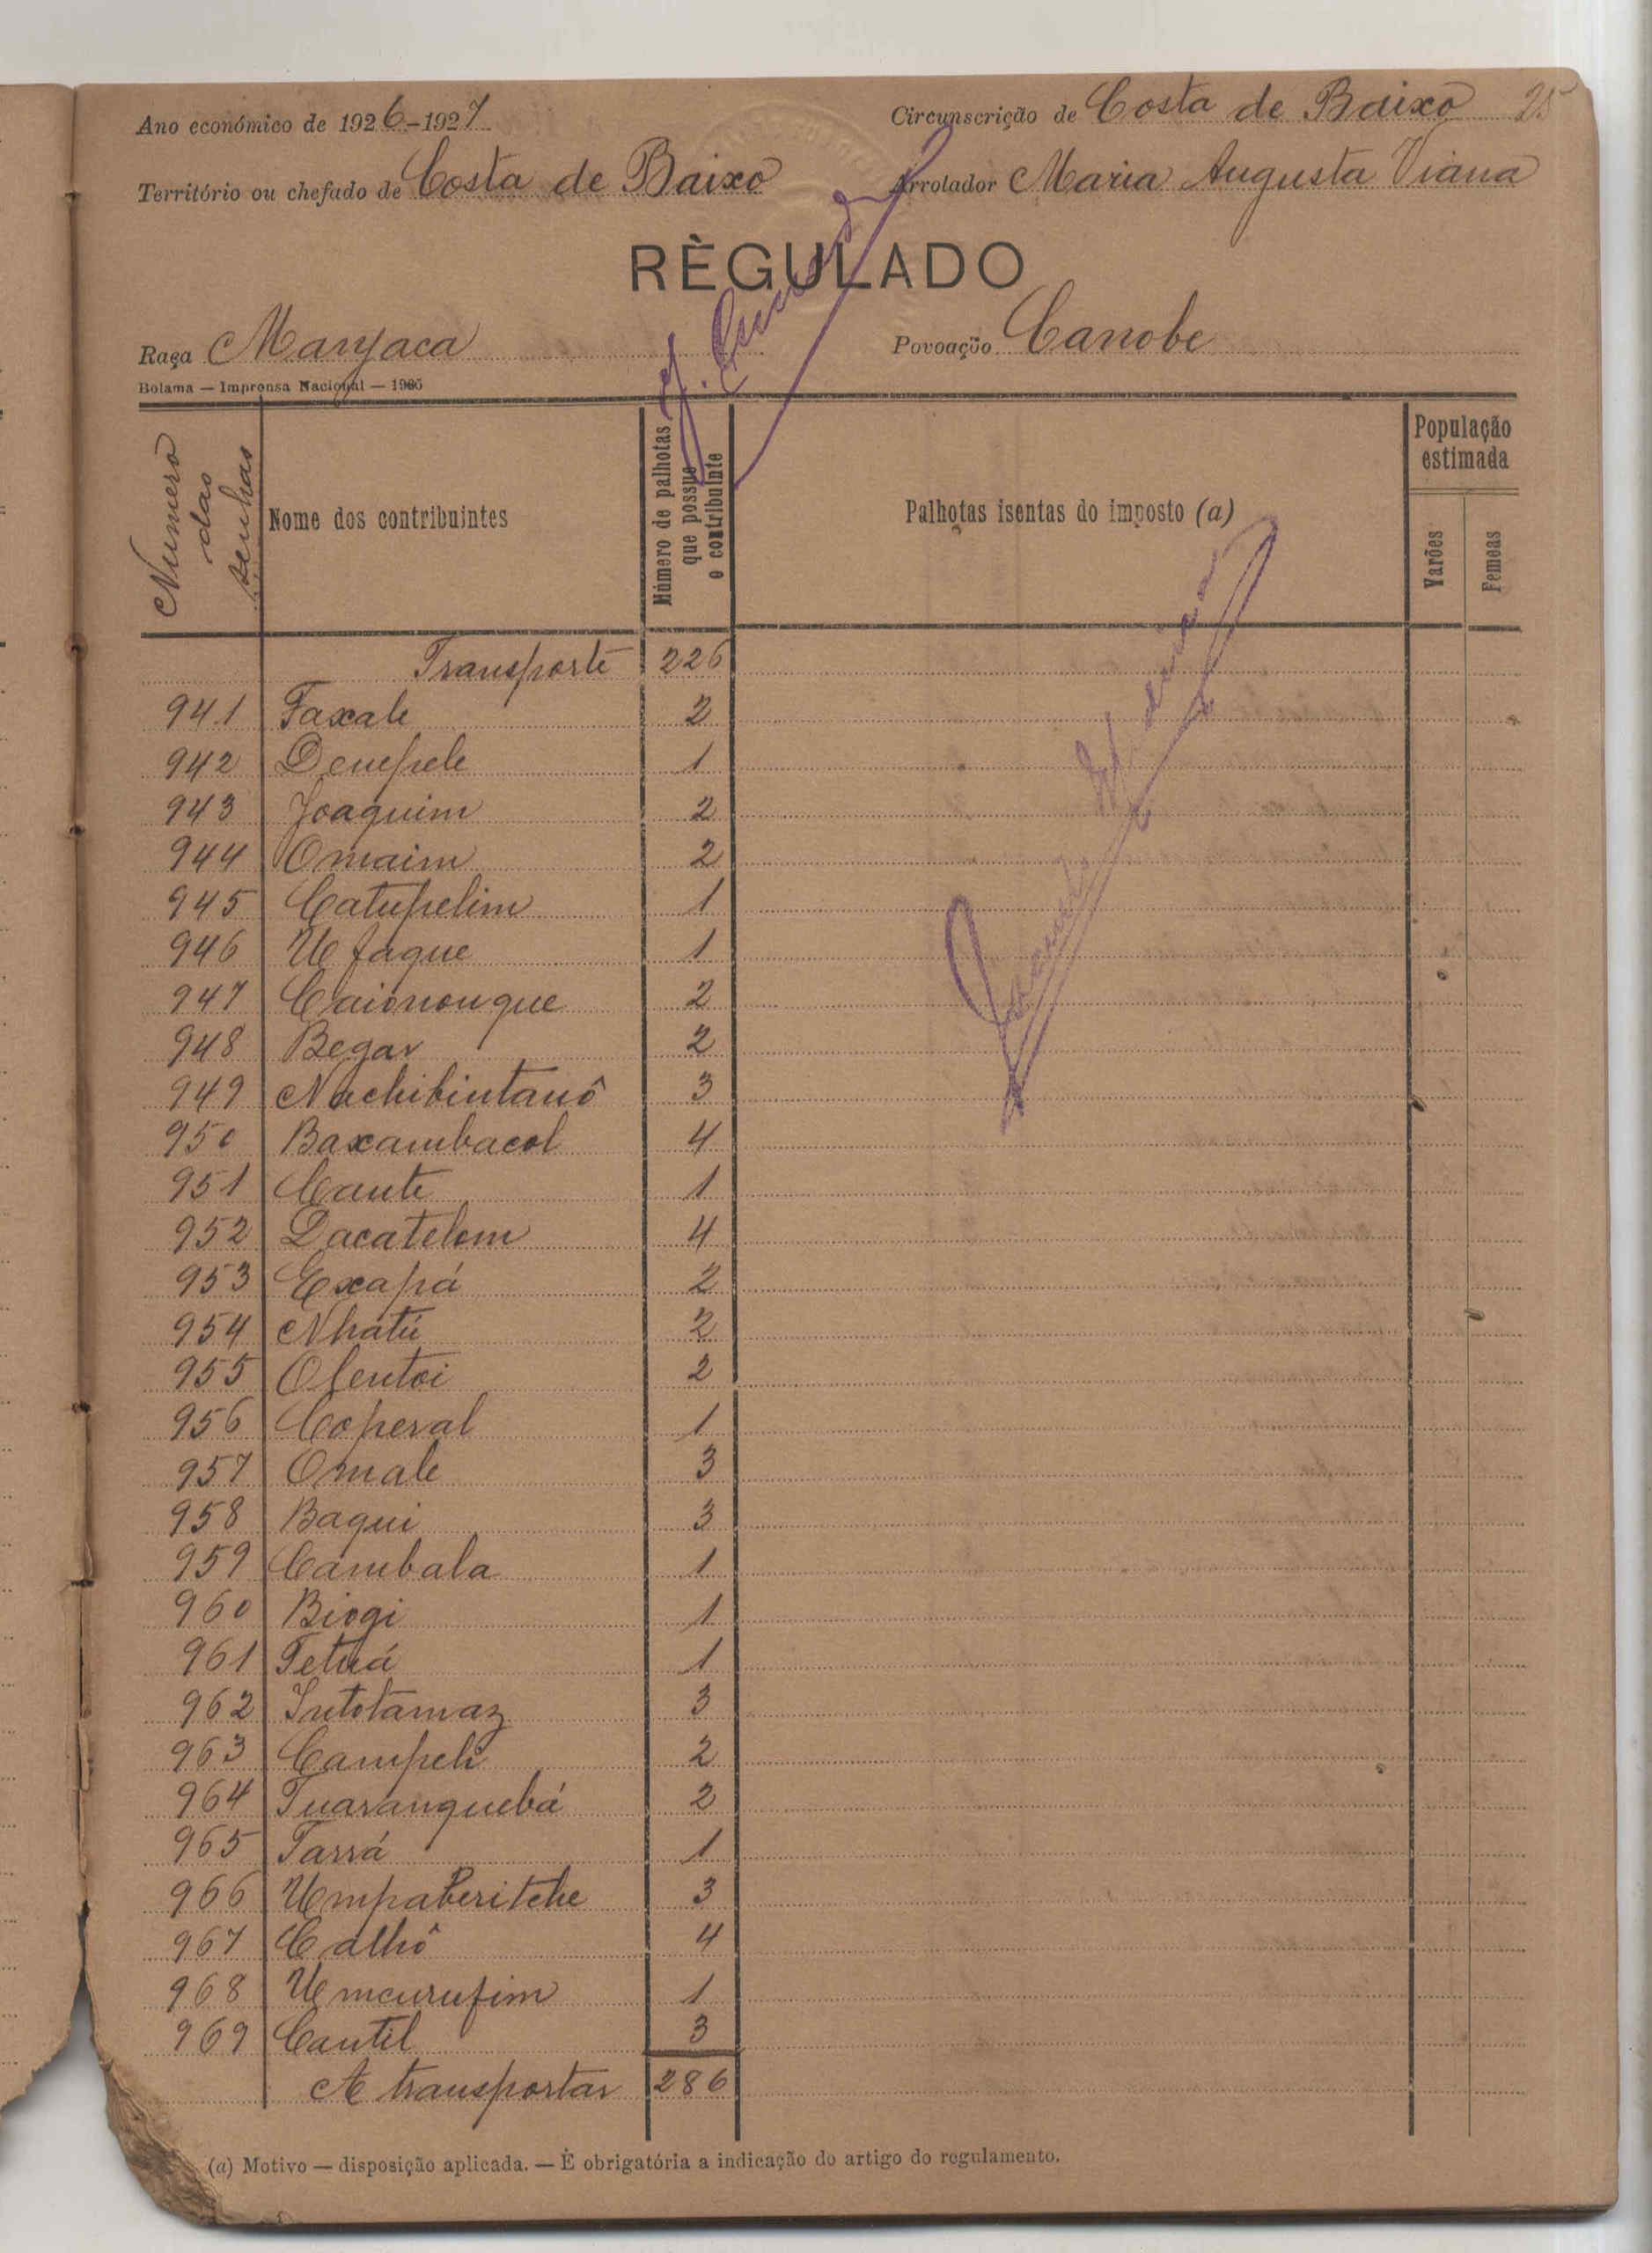 Ano económico de 1926-1927 Circunscrição de Costa de Baixo 25
Território ou chefado de Costa de Baixo Arrolador Maria Augusta Viana
RÈGULADO
Raça Manjaca Povoação Canobe
Bolama — Imprensa Nacional — 1926
Numero das senhas
Nome dos contribuintes
Número de palhotas que possue o contribuinte
Palhotas isentas do imposto (a)
População estimada
Varões
Femeas
Transporte 226
941 Faxale 2
942 Denepele 1
943 Joaquim 2
944 Omaim 2
945 Catupelim 1
946 Ufaque 1
947 Caiononque 2
948 Begar 2
949 Nachibintanô 3
950 Baxambacol 4
951 Cante 1
952 Dacatelom 4
953 Exapá 2
954 Nhatú 2
955 Ofentoi 2
956 Coperal 1
957 Omale 3
958 Baqui 3
959 Cambala 1
960 Biogi 1
961 Tetuá 1
962 Intotamaz 3
963 Campeli 2
964 Tuaranquebá 2
965 Tarrá 1
966 Umpaberitche 3
967 Calhô 4
968 Umcurufim 1
969 Cantil 3
A transportar 286
(a) Motivo — disposição aplicada. — É obrigatória a indicação do artigo do regulamento.